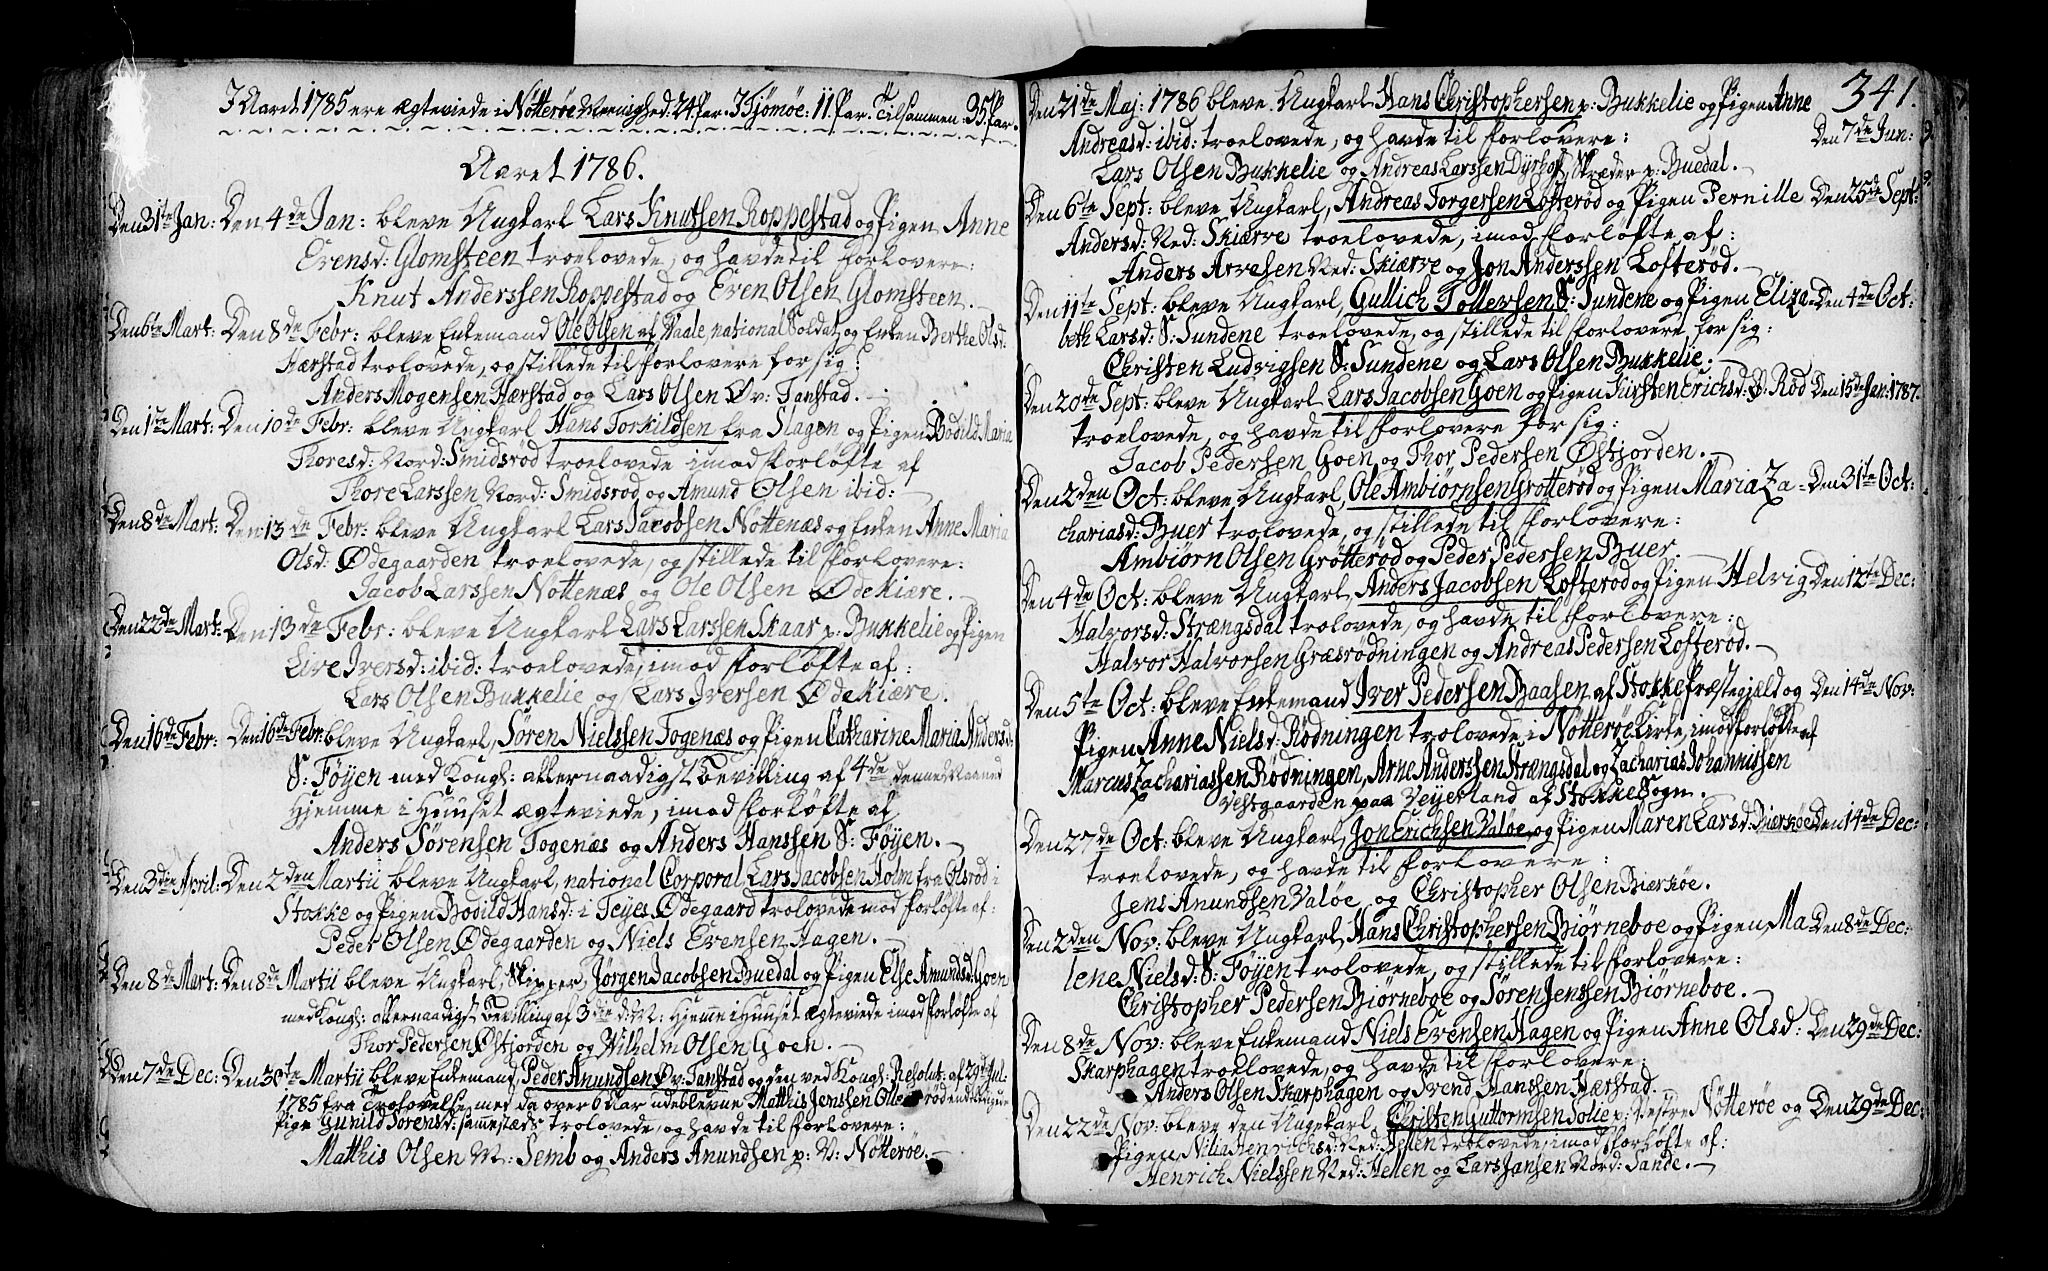 I Aaret 1785 ere ægteviede i Nötterøe Menighed: 24 Par. I Tjömöe: 11 Par. Tilsammen: 35 Par.
Aaret 1786.
Den 31te Jan: Den 4de Jan: bleve Ungkarl Lars Knutsen Roppestad og Pigen Anne
Evensd: Glomsteen troelovede, og havde til Forlovere:
Knut Anderssen Roppestad og Even Olsen Glomsteen.
Den 6te Mart: Den 8de Febr: bleve Enkemand Ole Olsen af Vaale, national Soldat, og Enken Berthe Olsd:
Hærstad trolovede, og stillede til Forlovere for sig:
Anders Mogensen Hærstad og Lars Olsen Øv: Tanstad.
Den 1te Mart: Den 10de Febr: bleve Ungkarl Hans Torkildsen fra Slagen og Pigen Bodild Maria
Thoresd: Nord: Smidsrød troelovede imod Forløfte af
Thore Larssen Nord: Smidsrød og Amund Olsen ibid:
Den 8de Mart: Den 13de Febr: bleve Ungkarl Lars Jacobsen Nöttenæs og Enken Anne Maria
Olsd: Ødegaarden troelovede, og stillede til Forlovere:
Jacob Larssen Nöttenæs og Ole Olsen Ødekiære.
Den 22de Mart: Den 13de Febr: bleve Ungkarl Lars Larssen Skaar p: Bukkelie og Pigen
Live Iversd: ibid: troelovede, imod Forløfte af:
Lars Olsen Bukkelie og Lars Iversen Ødekiære.
Den 16de Febr: Den 16de Febr: bleve Ungkarl, Søren Nielssen Togenæs og Pigen Catharine Maria Andersd:
S: Føyen med Kongl: allernaadigst Bevilling af 4de denne Maaned
Hjemme i Huuset ægteviede, imod Forløfte af
Anders Sørensen Togenæs og Anders Hanssen S: Føyen.
Den 3die April: Den 2den Martii bleve Ungkarl, national Corporal, Lars Jacobsen Holm fra Olsrød i
Stokke og Pigen Bodild Hansd: i Teyes Ødegaard trolovede imod Forløfte af:
Peder Olsen Ødegaarden og Niels Evensen Hagen.
Den 8de Mart: Den 8de Martii bleve Ungkarl, Skipper, Jørgen Jacobsen Buedal og Pigen Else Amundsd: Goen
med Kongl: allernaadigst Bevilling af 3die d: M: Hjemme i Huuset ægteviede imod Forløfte af
Thor Pedersen Østjorden og Wilhelm Olsen Goen.
Den 7de Dec: Den 30te Martii bleve Enkemand, Peder Anundsen Øv: Tanstad og den ved Kongl: Resolut: af 29de Jul:
1785 fra Trolovelse med da over 6 Aar udeblevne Matthis Jenssen
Pige Gunild Sorensd: sammestæds trolovede, og havde til Forlovere:
Matthis Olsen M: Semb og Anders Anundsen p: V: Nötterøe.
341.
Den 21de Maj: 1786 bleve Ungkarl Hans Christophersen p: Bukkelie og Pigen Anne
Andreasd: ibid: troelovede, og havde til Forlovere: Den 7de Jun:
Lars Olsen Bukkelie og Andreas Larssen Dyrhof, Skræder p: Buedal.
Den 6te Sept: bleve Ungkarl, Andreas Torgersen Lofterød og Pigen Pernille Den 25de Sept:
Andersd: Ned: Skiærve troelovede, imod Forløfte af:
Anders Arvesen Ned: Skiærve og Jon Anderssen Lofterød.
Den 11te Sept: bleve Ungkarl, Gullich Tollevsen S: Sundene og Pigen Eliza- Den 4de Oct:
beth Larsd: S: Sundene troelovede, og stillede til Forlovere for sig:
Christen Ludvigsen S: Sundene og Lars Olsen Bukkelie.
Den 20de Sept: bleve Ungkarl Lars Jacobsen Goen og Pigen Kirsten Erichsd: Rød Den 15de Jan: 1787.
troelovede, og havde til Forlovere for sig:
Jacob Pedersen Goen og Thor Pedersen Østjorden.
Den 2den Oct: bleve Ungkarl, Ole Ambiørnsen Grøtterød og Pigen Maria Za- Den 31te Oct:
chariasd: Buer trolovede, og stillede til Forlovere:
Ambiørn Olsen Grøtterød og Peder Pedersen Buer.
Den 4de Oct: bleve Ungkarl, Anders Jacobsen Lofterød og Pigen Helvig Den 12te Dec:
Halvorsd: Strængsdal trolovede, og havde til Forlovere:
Halvor Halvorsen Græsrødningen og Andreas Pedersen Lofterød.
Den 5te Oct: bleve Enkemand Iver Pedersen Baasen af Stokke Præstegjæld og Den 14de Nov:
Pigen Anne Nielsd: Rødningen trolovede i Nötterøe Kirke, imod Forløfte af
Marcus Zachariassen Rødningen, Arne Anderssen Strængsdal og Zacharias Johannissen
Vestgaarden paa Veyerland af Stokke Sogn.
Den 27de Oct: bleve Ungkarl, Jon Erichsen Valøe, og Pigen Maren Larsd: Bierkøe Den 14de Dec:
troelovede, og havde til Forlovere:
Jens Anundsen Valøe, og Christopher Olsen Bierkøe.
Den 2den Nov: bleve Ungkarl, Hans Christophersen Biørneboe og Pigen Ma- Den 8de Dec:
lene Nielsd: S: Føyen trolovede, og stillede til Forlovere:
Christopher Pedersen Biørneboe og Søren Jenssen Biørneboe.
Den 8de Nov: bleve Enkemand Niels Evensen Hagen og Pigen Anne Olsd: Den 29de Dec:
Skarphagen troelovede, og havde til Forlovere:
Anders Olsen Skarphagen og Svend Hanssen Hærstad.
Den 22de Nov: bleve den Ungkarl, Christen Guttormsen Solie p: Vestre Nötterøe og Den 29de Dec:
Pigen Nilia Henrichsd: Ned: Hellen trolovede, imod Forløfte af:
Henrich Nielssen Ned: Hellen og Lars Jansen Nord: Sande.